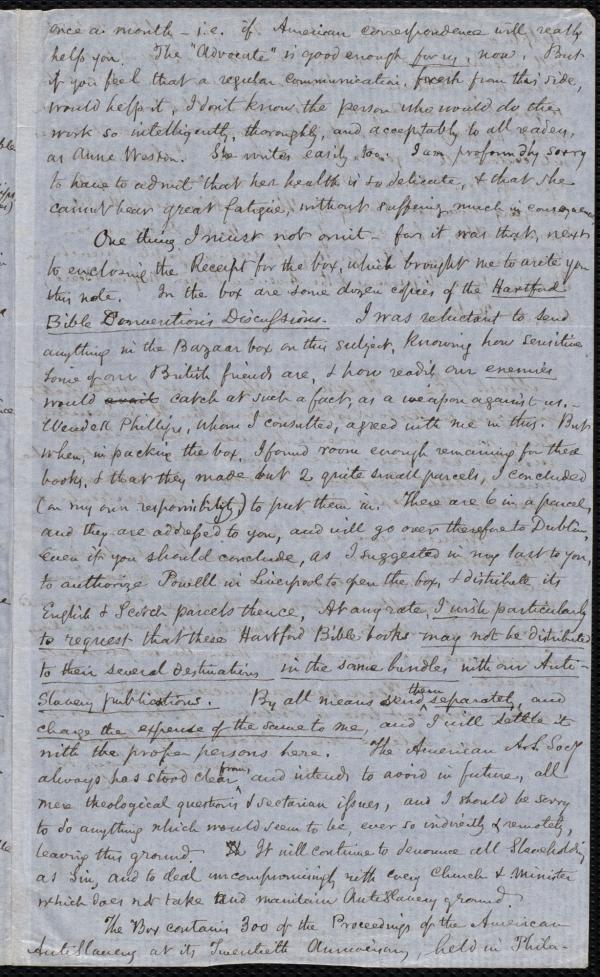 once a month - i.e. if American correspondence will really
help you. The "Advocate" is good enough for us, now. But
if you feel that a regular communication, fresh from this side,
would help it, I don't know the person who would do the
work so intelligently, thoroughly, and acceptably to all readers,
as Anne Weston. She writes easily, too. I am profoundly sorry
to have to admit that her health is so delicate, & that she
cannot bear great fatigue, without suffering much in consequence.
One thing I must not omit - for it was that, next
to enclosing the Receipt for the box, which brought me to write you
this note. In the box are some dozen copies of the Hartford
Bible Convention's Discussions. I was reluctant to send
anything in the Bazaar box on this subject, knowing how sensitive
some of our British friends are, & how readily our enemies
would avail catch at such a fact, as a weapon against us. -
Wendell Phillips, whom I consulted, agreed with me in this. But
when, in packing the box, I found room enough remaining for these
books, & that they made but 2 quite small parcels, I concluded
(on my own responsibility) to put them in. There are 6 in a parcel,
and they are addressed to you, and will go over therefore to Dublin,
even if you should conclude, as I suggested in my last to you,
to authorize Powell in Liverpool to open the box, & distribute its
English & Scotch parcels thence. At any rate, I wish particularly
to request that these Hartford Bible books may not be distributed
to their several destinations in the same bundles with our Anti-
Slavery publications. By all means send them separately, and
charge the expense of the same to me, and I will settle it
with the proper persons here. The American A.S. Socy
always has stood clear from, and intends to avoid in future, all
mere theological questions & sectarian issues, and I should be sorry
to do anything which would seem to be, ever so indirectly & remotely,
leaving this ground. It will continue to denounce all Slaveholding
as Sin, and to deal uncompromisingly with every Church & Minister
which does not take and maintain AntiSlavery ground.
The Box contains 300 of the Proceedings of the American
AntiSlavery at its Twentieth Anniversary, held in Phila-